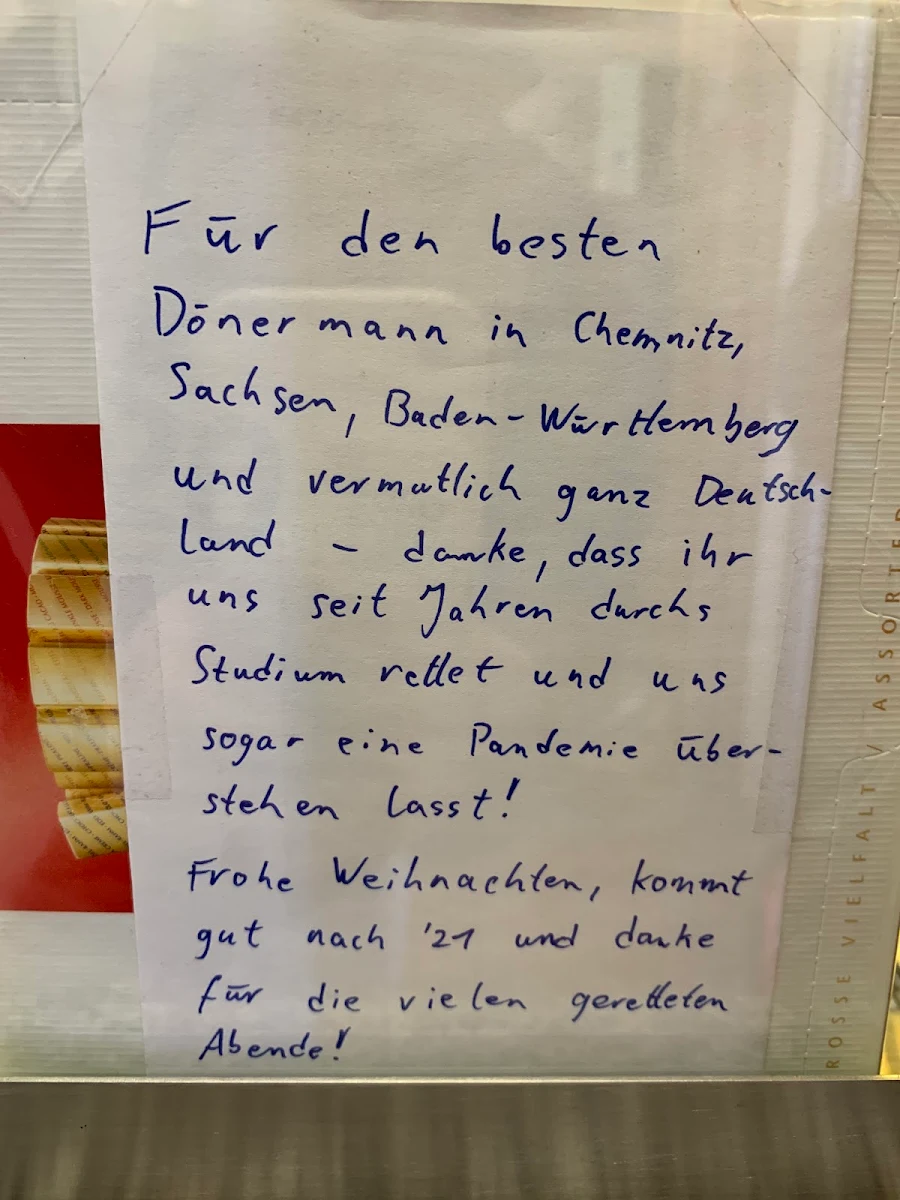 Für den besten
Dönermann in Chemnitz,
Sachsen, Baden-Württemberg
und vermutlich ganz Deutsch-
land – danke, dass ihr
uns seit Jahren durchs
Studium rettet und uns
sogar eine Pandemie über-
stehen lasst!
Frohe Weihnachten, kommt
gut nach '21 und danke
für die vielen geretteten
Abende!
ROSSE VIELFALT V ASSORTED